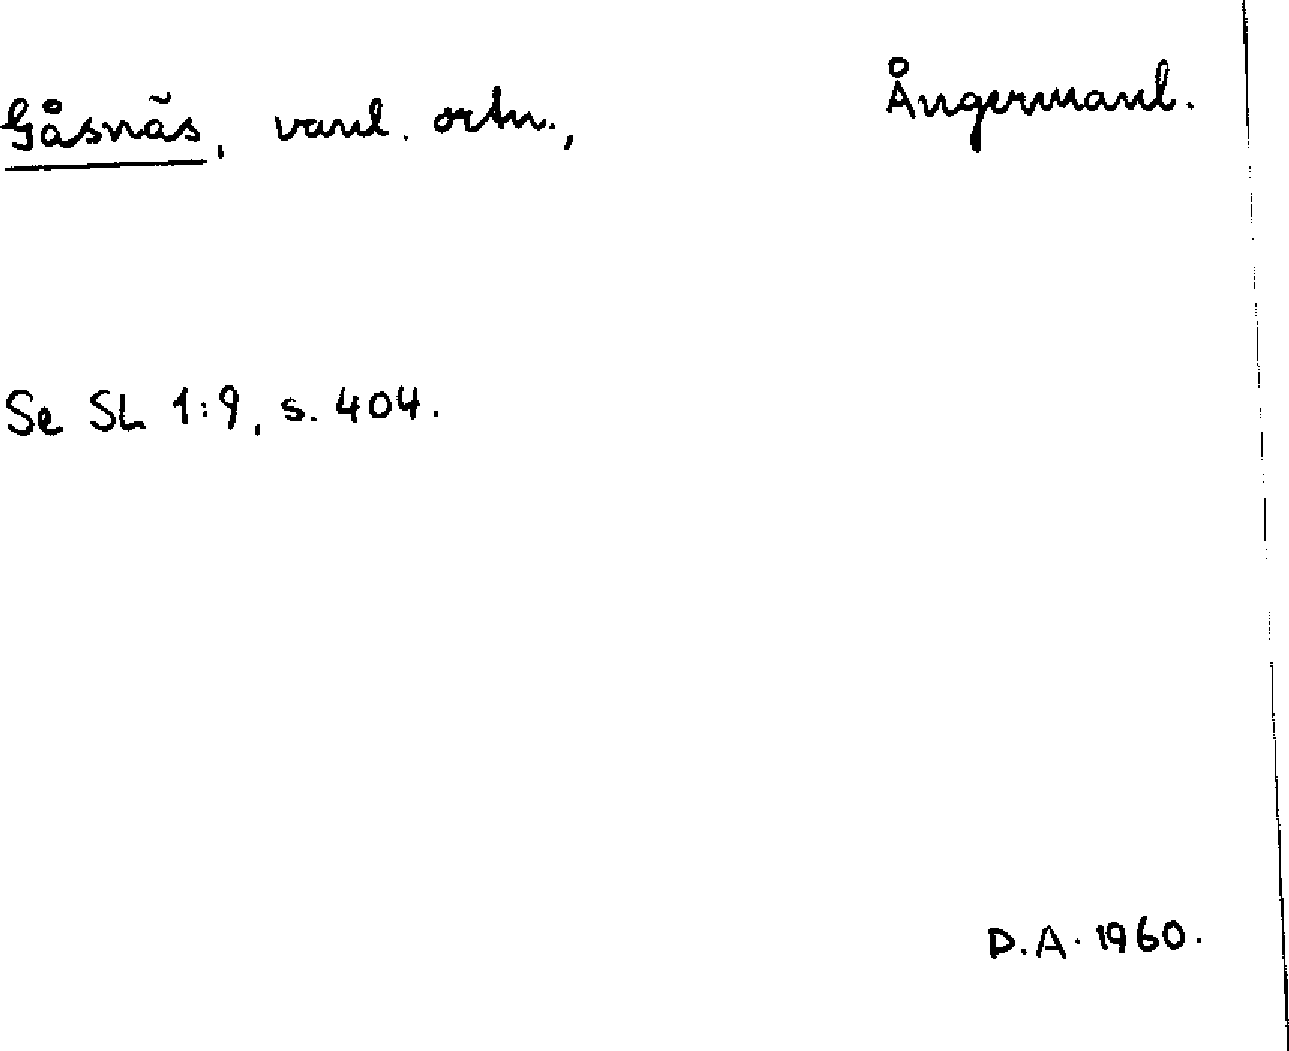 Gåsnäs, vanl. ortn., Ångermanl.
Se SL 1:9, s. 404.
D.A. 1960.